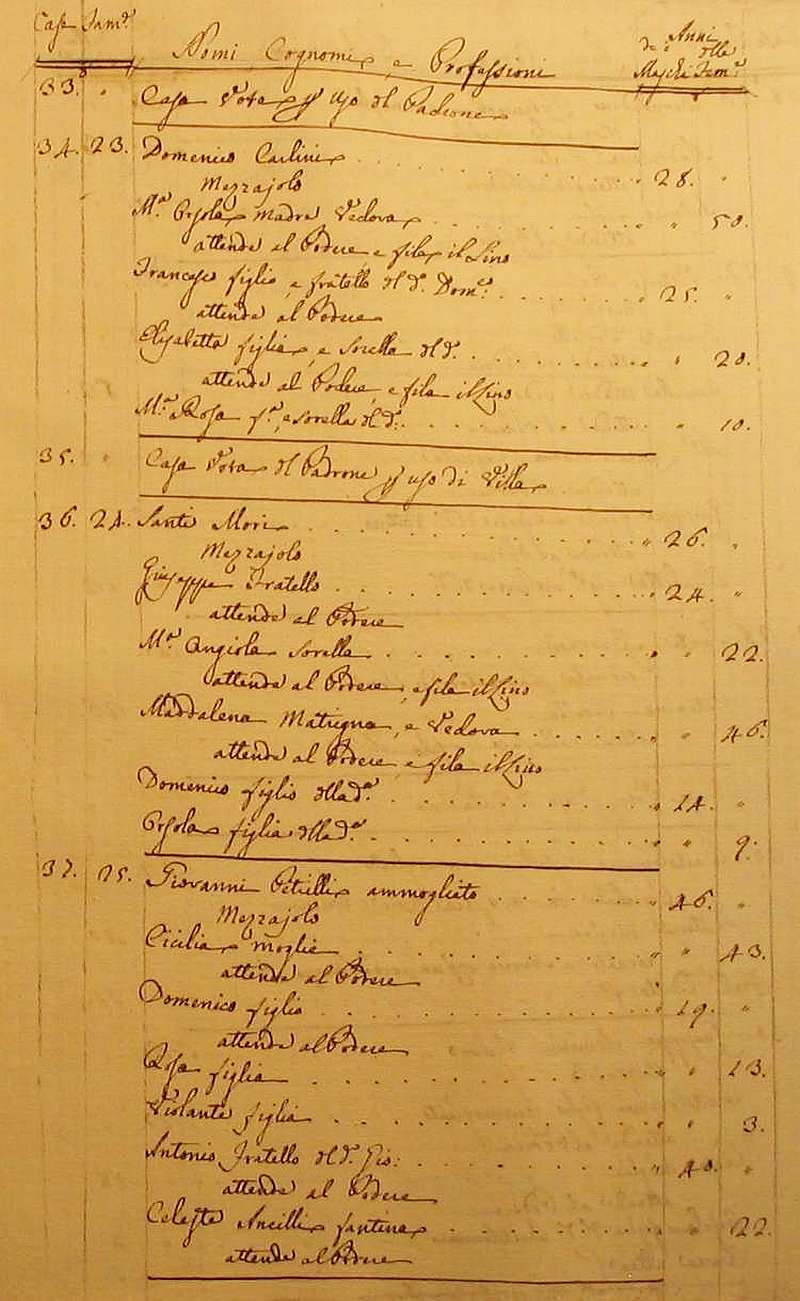 Case Fam.e
Nomi Cognomi, e Professioni
Anni
de' elle
Maschi Fem.e
33. " Casa Vota p uso del Padrone
34. 23. Domenico Carlini . . . . 28. "
Mezzajolo
M.a Orsola Madre Vedova . . . . " 50.
attende al Podere e fila il Lino
Francesco figlio, e fratello del d.o Dom.co . . . . 25. "
attende al Podere
Elisabetta figlia, e Sorella del d.o . . . . " 20.
attende al Podere, e fila il Lino
M.a Rosa f.a, e Sorella del d.o: . . . . " 10.
35. " Casa Vota del Padrone p uso di Villa
36. 24. Santi Mori . . . . 26. "
Mezzajolo
Giuseppe Fratello . . . . 24. "
attende al Podere
M.a Angiola Sorella . . . . " 22.
attende al Podere, e fila il Lino
Maddalena Matrigna, e Vedova . . . . " 46.
attende al Podere, e fila il Lino
Domenico figlio della d.a . . . . 14. "
Orsola figlia della d.a . . . . " 9.
37. 25. Giovanni Petrilli ammogliato . . . . 46. "
Mezzajolo
Cicilia moglie . . . . " 43.
attende al Podere
Domenico figlio . . . . 19. "
attende al Podere
Rosa figlia . . . . " 13.
Violante figlia . . . . " 3.
Antonio Fratello del d.o Gio: . . . . 40. "
attende al Podere
Celeste Ancilli fantina . . . . " 22.
attende al Podere